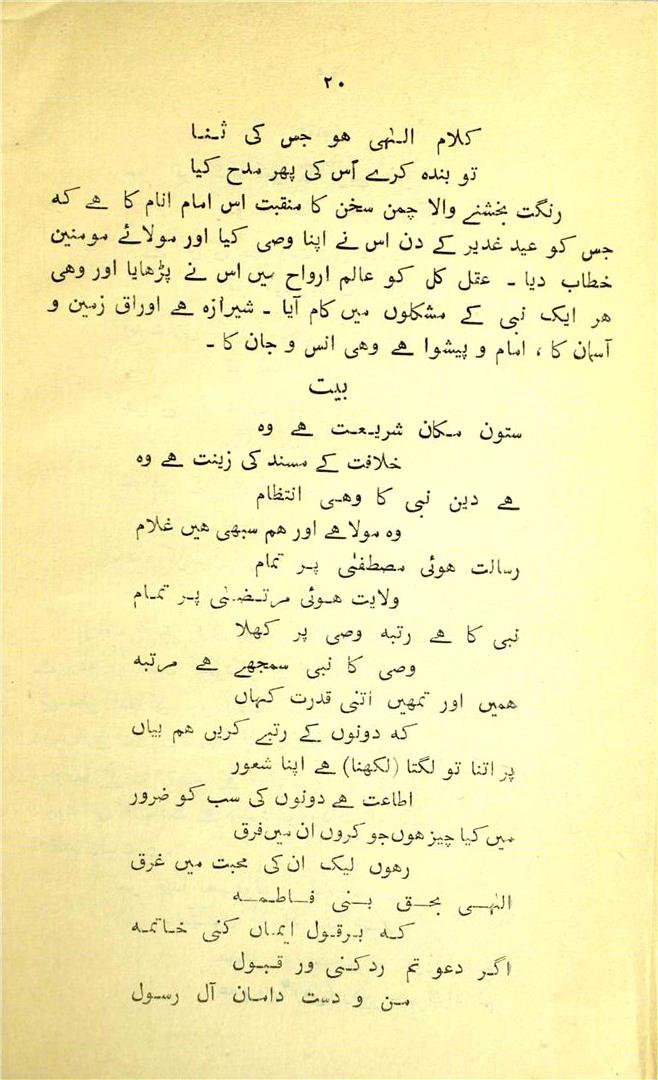 ۲۰
کلام الٰہی ھو جس کی ثنا
تو بندہ کرے اُس کی پھر مدح کیا
رنگت بخشنے والا چمن سخن کا منقبت اس امام انام کا ہے کہ
جس کو عید غدیر کے دن اس نے اپنا وصی کیا اور مولائے مومنین
خطاب دیا ۔ عقل کل کو عالم ارواح میں اس نے پڑھایا اور وھی
ھر ایک نبی کے مشکلوں میں کام آیا ۔ شیرازہ ہے اوراق زمین و
آسمان کا ، امام و پیشوا ہے وھی انس و جان کا ۔
بیت
ستون مکان شریعت ہے وہ
خلافت کے مسند کی زینت ہے وہ
ہے دین نبی کا وھی انتظام
وہ مولا ہے اور ھم سبھی ھیں غلام
رسالت ھوئی مصطفیٰ پر تمام
ولایت ھوئی مرتضیٰ پر تمام
نبی کا ہے رتبہ وصی پر کھلا
وصی کا نبی سمجھے ہے مرتبہ
ھمیں اور تمھیں اتنی قدرت کہاں
کہ دونوں کے رتبے کریں ھم بیاں
پر اتنا تو لگتا (لکھنا) ہے اپنا شعور
اطاعت ہے دونوں کی سب کو ضرور
میں کیا چیز ھوں جو کروں ان میں فرق
رھوں لیک ان کی محبت میں غرق
الٰہی بحق بنی فاطمہ
کہ برقول ایماں کنی خاتمہ
اگر دعو تم ردکنی ور قبول
من و دست دامان آل رسول